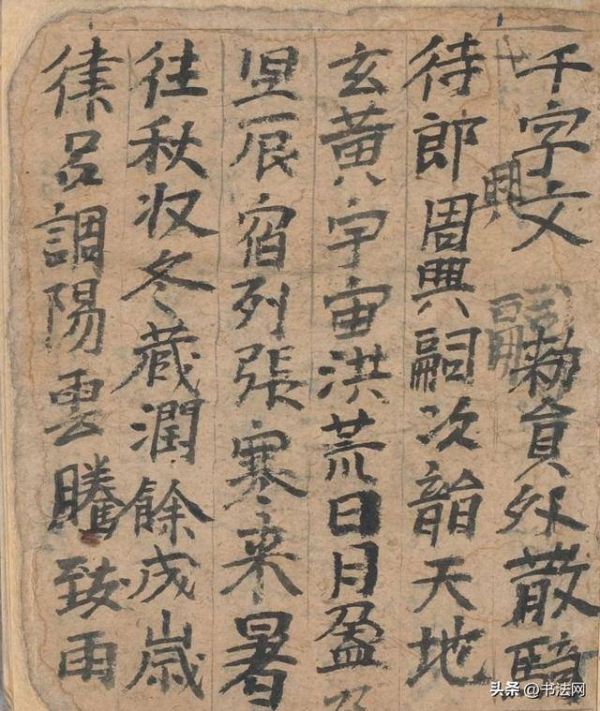 千字文 勑員外散騎
興嗣
待郎周興嗣次韻天地
玄黃宇宙洪荒日月盈
昃辰宿列張寒来暑
往秋収冬藏潤餘成歳
律呂調陽雲騰致雨
头条 @书法网